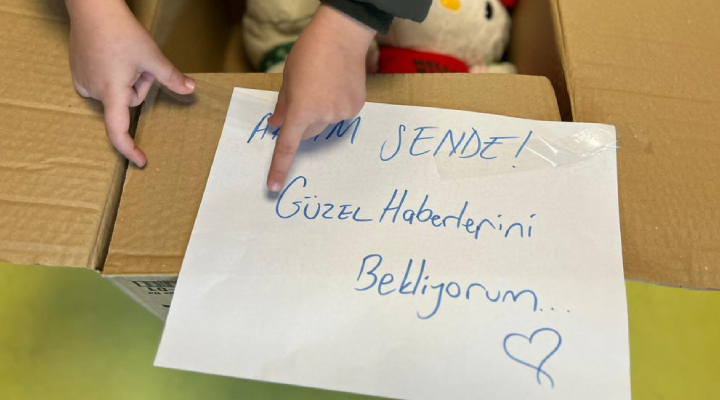 SENDE!
GÜZEL Haberlerini
Bekliyorum...